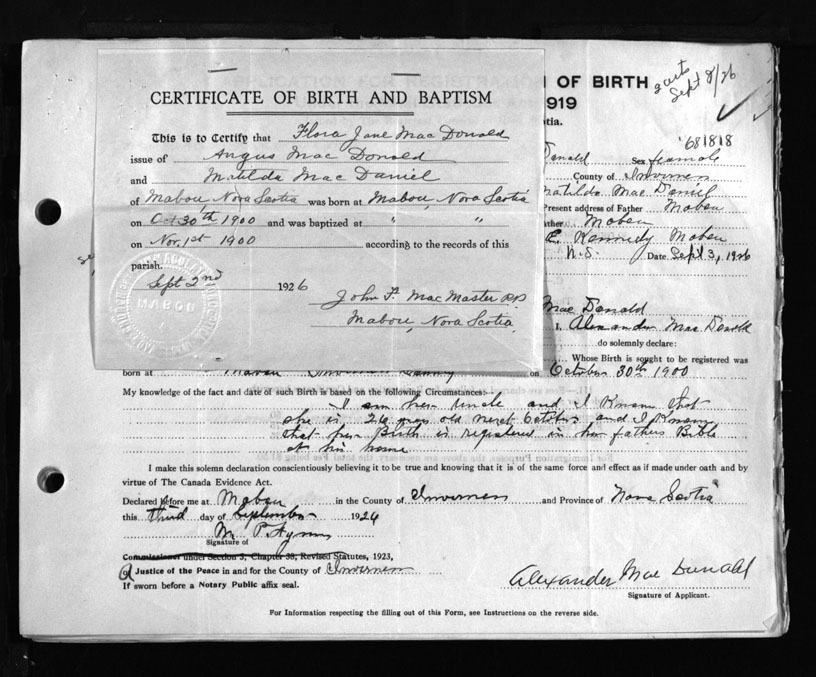 CERTIFICATE OF BIRTH AND BAPTISM
This is to Certify that Flora Jane Mac Donald
issue of Angus Mac Donald
and Matilda Mac Daniel
of Mabou Nova Scotia was born at Mabou, Nova Scotia
on Oct 30th 1900 and was baptized at " "
on Nov. 1st 1900 according to the records of this
parish.
Sept 2nd 1926
John F. Mac Master P.P.
Mabou, Nova Scotia
MABOU
OF BIRTH
Sept 8/26
1919
Scotia.
681818
Donald Sex female
County of Inverness
Matilda Mac Daniel
Present address of Father Mabou
Mabou
Kennedy Mabou
N.S. Date Sept 3, 1926
Mac Donald
I, Alexander Mac Donald
do solemnly declare:
Whose Birth is sought to be registered was
born at Mabou Inverness County on October 30th 1900
My knowledge of the fact and date of such Birth is based on the following Circumstances:-
I am her Uncle and I Know that
she is 26 years old next October and I Know
that her Birth is registered in her fathers Bible
at his home
I make this solemn declaration conscientiously believing it to be true and knowing that it is of the same force and effect as if made under oath and by
virtue of The Canada Evidence Act.
Declared before me at Mabou in the County of Inverness and Province of Nova Scotia
this third day of September 1926
Signature of
Commissioner under Section 3, Chapter 38, Revised Statutes, 1923,
Justice of the Peace in and for the County of Inverness
If sworn before a Notary Public affix seal.
Alexander Mac Donald
Signature of Applicant.
For Information respecting the filling out of this Form, see Instructions on the reverse side.